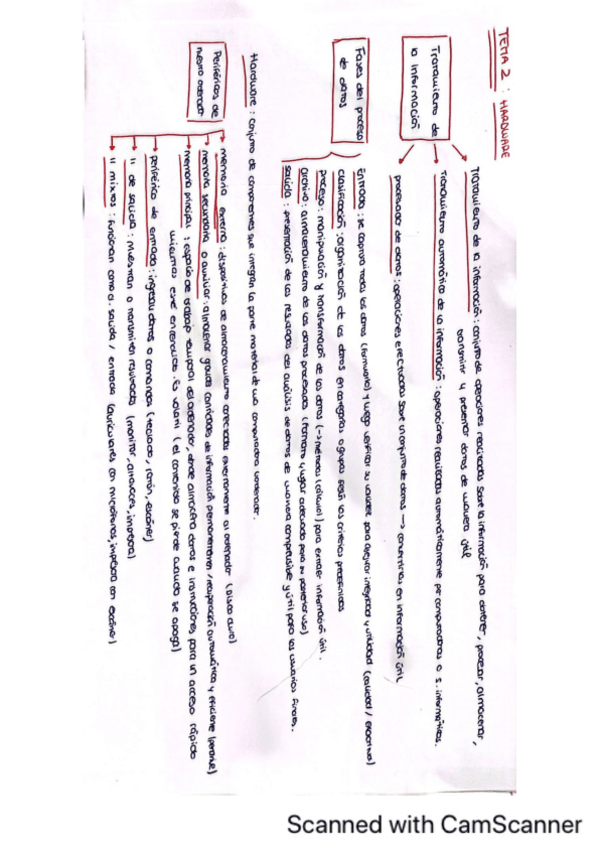 TEMA 2: HARDWARE
Tratamiento de
la información
Tratamiento de la información: conjunto de operaciones realizadas sobre la información para obtener, procesar, almacenar,
transmitir y presentar datos de manera útil
Tratamiento automático de la información: operaciones realizadas automáticamente por computadoras o s. informáticos.
procesador de datos: operaciones efectuadas sobre un conjunto de datos → convertirlos en información útil
Fases del proceso
de datos
Entrada: se captura todos los datos (formulario) y luego verificar su validez para asegurar integridad y utilidad (calidad /
clasificación: organización de los datos en categorías o grupos según los criterios predefinidos
proceso: manipulación y transformación de los datos (→ métodos (cálculo)) para extraer información útil.
archivo: almacenamiento de los datos procesados (formato y lugar adecuado para su posterior uso)
salida: presentación de los resultados del análisis de datos de manera comprensible y útil para los usuarios finales.
Hardware: conjunto de componentes que integran la parte material de una computadora
Periféricos de
nuestro ordenador
memoria externa: dispositivos de almacenamiento conectados externamente al ordenador (disco duro)
memoria secundaria o auxiliar: almacenar grandes cantidades de información permanentemente / recuperación automática y eficiente
memoria principal: espacio de trabajo temporal del ordenador, donde almacena datos e instrucciones para un acceso rápido
mientras esté encendido. Es volatil (el contenido se pierde cuando se apaga)
periférico de entrada: ingresar datos o comandos (teclado, ratón, escáner)
" de salida: muestran o transmiten resultados (monitor, altavoces, impresora)
" mixtos: funcionan como a. salida / entrada (auriculares con micrófonos, impresora con escáner)
Scanned with CamScanner